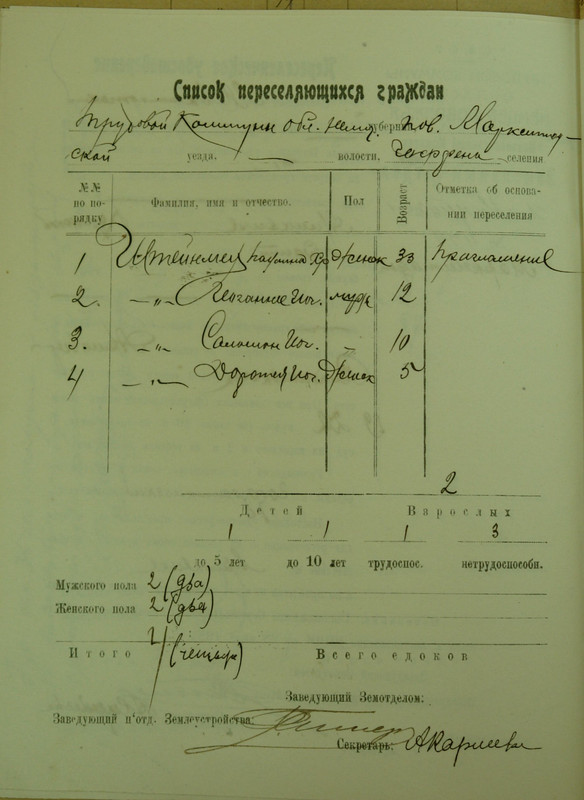 Список переселяющихся граждан
Трудовой Коммуны обл. немц. губернии пов. Марксштад-
ской уезда. — волости. селения
№№ по по-рядку Фамилия, имя и отчество. Пол Возраст Отметка об основа-нии переселения
1 Штейнмец Хр женск 33 Приглашение
2. —"— Иоганнес Иог. мужс 12
3. —"— Саломон Иог. – 10
4 —"— Доротея Иог. Женск 5
2
Детей Взрослых
1 1 1 3
до 5 лет до 10 лет трудоспос. нетрудоспособн.
Мужского пола 2 (два)
Женского пола 2 (два)
Итого 4 (четыре) Всего едоков
Заведующий Земотделом:
Заведующий п'отд. Землеустройства:
Секретарь: